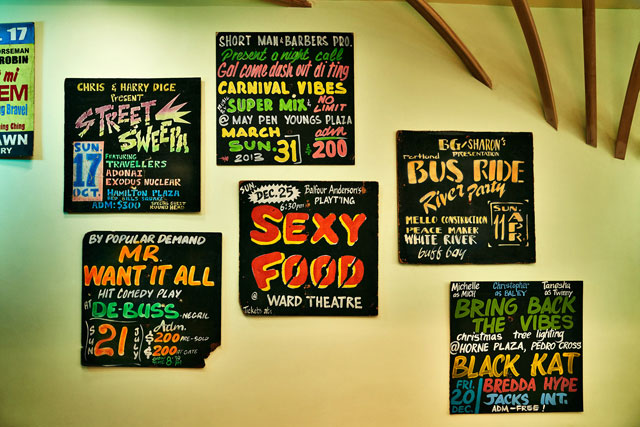 L 17
HORSEMAN
ROBIN
mi
EM
ng Bravel
ng Ching
AWN
RY
CHRIS & HARRY DICE
Present
STREET
SWEEPA
SUN.
17
OCT.
FEATURING
TRAVELLERS
ADONAI
EXODUS NUCLEAR
HAMILTON PLAZA
ADM: $300
SPECIAL GUEST
ROUND HEAD
SHORT MAN & BARBERS PRO.
Present a night call
Gal come dash out di ting
CARNIVAL VIBES
SUPER MIX & NO LIMIT
@ MAY PEN YOUNGS PLAZA
MARCH
SUN. 31
2013
adm
200
BG & SHARON'S
Portland PRESENTATION
BUS RIDE
River Party
MELLO CONSTRUCTION
PEACE MAKER
WHITE RIVER
buff bay
SUN.
11
APR
BY POPULAR DEMAND
MR.
WANT IT ALL
HIT COMEDY PLAY
AT DE-BUSS. NEGRIL
SUN 21 JULY
Adm.
$200 PRE-SOLD
$200 AT GATE
SUN. DEC. 25
6:30pm
Balfour Anderson's
PLAYTING
SEXY
FOOD
@ WARD THEATRE
Tickets at:
Michelle as MICH
Christopher as BAILEY
Tanesha as Tweeny
BRING BACK
THE VIBES
christmas tree lighting
@ HORNE PLAZA, PEDRO CROSS
BLACK KAT
FRI. 20 DEC.
BREDDA HYPE
JACKS INT.
ADM-FREE!